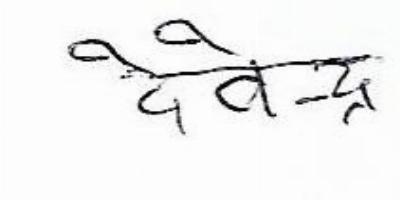 देवेन्द्र